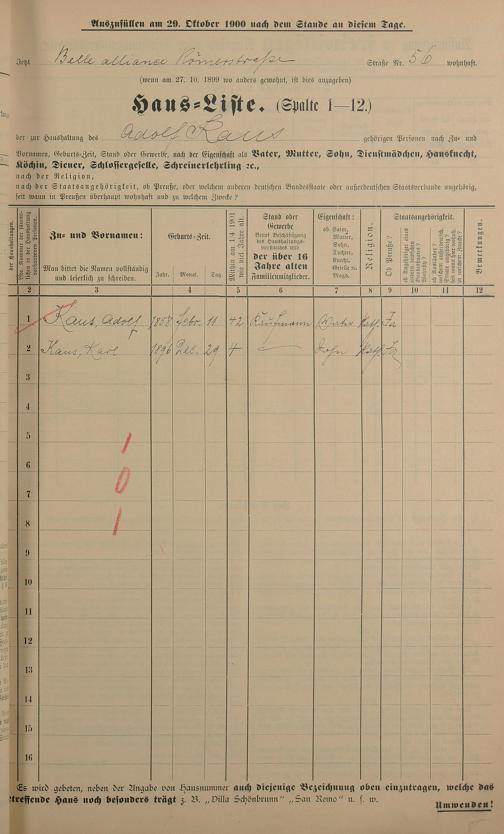 Auszufüllen am 29. Oktober 1900 nach dem Stande an diesem Tage.
Jetzt Belle alliance Römerstraße Straße Nr. 56 wohnhaft.
(wenn am 27. 10. 1899 wo anders gewohnt, ist dies anzugeben)
Haus-Liste. (Spalte 1—12.)
der zur Haushaltung des Adolf Kaus gehörigen Personen nach Zu- und
Vornamen, Geburts-Zeit, Stand oder Gewerbe, nach der Eigenschaft als Vater, Mutter, Sohn, Dienstmädchen, Hausknecht,
Köchin, Diener, Schlossergeselle, Schreinerlehrling ꝛc.,
nach der Religion,
nach der Staatsangehörigkeit, ob Preuße, oder welchem anderen deutschen Bundesstaate oder außerdeutschen Staatsverbande angehörig,
seit wann in Preußen überhaupt wohnhaft und zu welchem Zwecke?
Zu- und Vornamen:
Man bittet die Namen vollständig und leserlich zu schreiben.
Geburts-Zeit.
Jahr. Monat. Tag.
Mithin am 1/4 1901 wie viel Jahre alt.
Stand oder Gewerbe
der über 16 Jahre alten Familienmitglieder.
Eigenschaft:
ob Vater, Mutter, Sohn, Tochter, Knecht, Geselle ꝛc. Magd.
Religion.
Staatsangehörigkeit.
Ob Preuße?
Bemerkungen.
2 3 4 5 6 7 8 9 10 11 12
1 Kaus, Adolf 1858 Febr. 11 42 Kaufmann Vater Kath. Ja
2 Kaus, Karl 1896 Dec. 29 4 — Sohn Kath. Ja
3
4
5 1
6
7 0
8 1
9
10
11
12
13
14
15
16
Es wird gebeten, neben der Angabe von Hausnummer auch diejenige Bezeichnung oben einzutragen, welche das
treffende Haus noch besonders trägt z. B. „Villa Schönbrunn" „San Remo" u. s. w.
Umwenden!